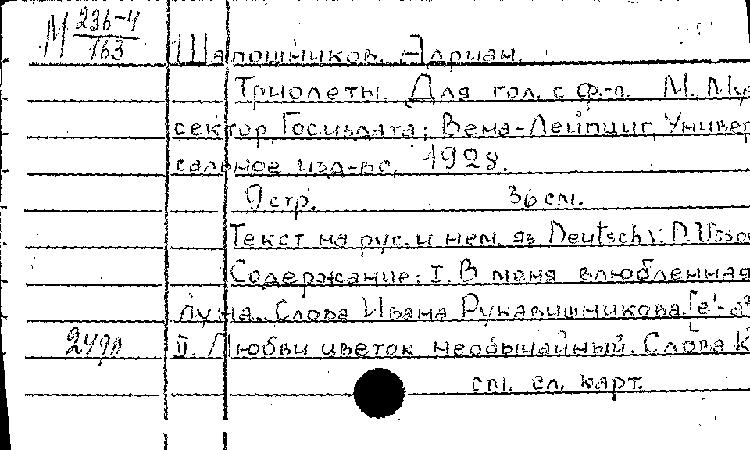 М 236-4
163
Шапошников, Адриан.
Триолеты. Для гол. с ф-п. М. Муз
сектор Госиздата; Вена-Лейпциг, Универ
сальное изд-во, 1928.
9 стр. 36 см.
Текст на рус. и нем. яз Deutsch v: D. Usso
Содержание: I. В меня влюбленная
луна. Слова Ивана Рукавишникова. [e'-a²
249п II. Любви цветок необычайный. Слова К
см. сл. карт.